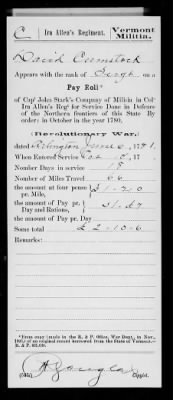 C | Ira Allen's Regiment. | Vermont Militia.
David Comstock
Appears with the rank of Sergt on a
Pay Roll*
of Capt John Stark's Company of Militia in Col
Ira Allen's Regt for Service Done in Defence
of the Northern frontiers of this State By
order: in October in the year 1780,
(Revolutionary War,)
dated Arlington June 6, 1781.
When Entered Service Oct 10, 17
Number Days in service 15
Number of Miles Travel 66
the amount at four pence pr. Mile, £1-2-0
the amount of Pay pr. Day and Rations,
the amount of Pay pr. Day
Sum total £2-10-6
Remarks:
*From copy made in the R. & P. Office, War Dept., in Nov.,
R. & P.
Copyist.